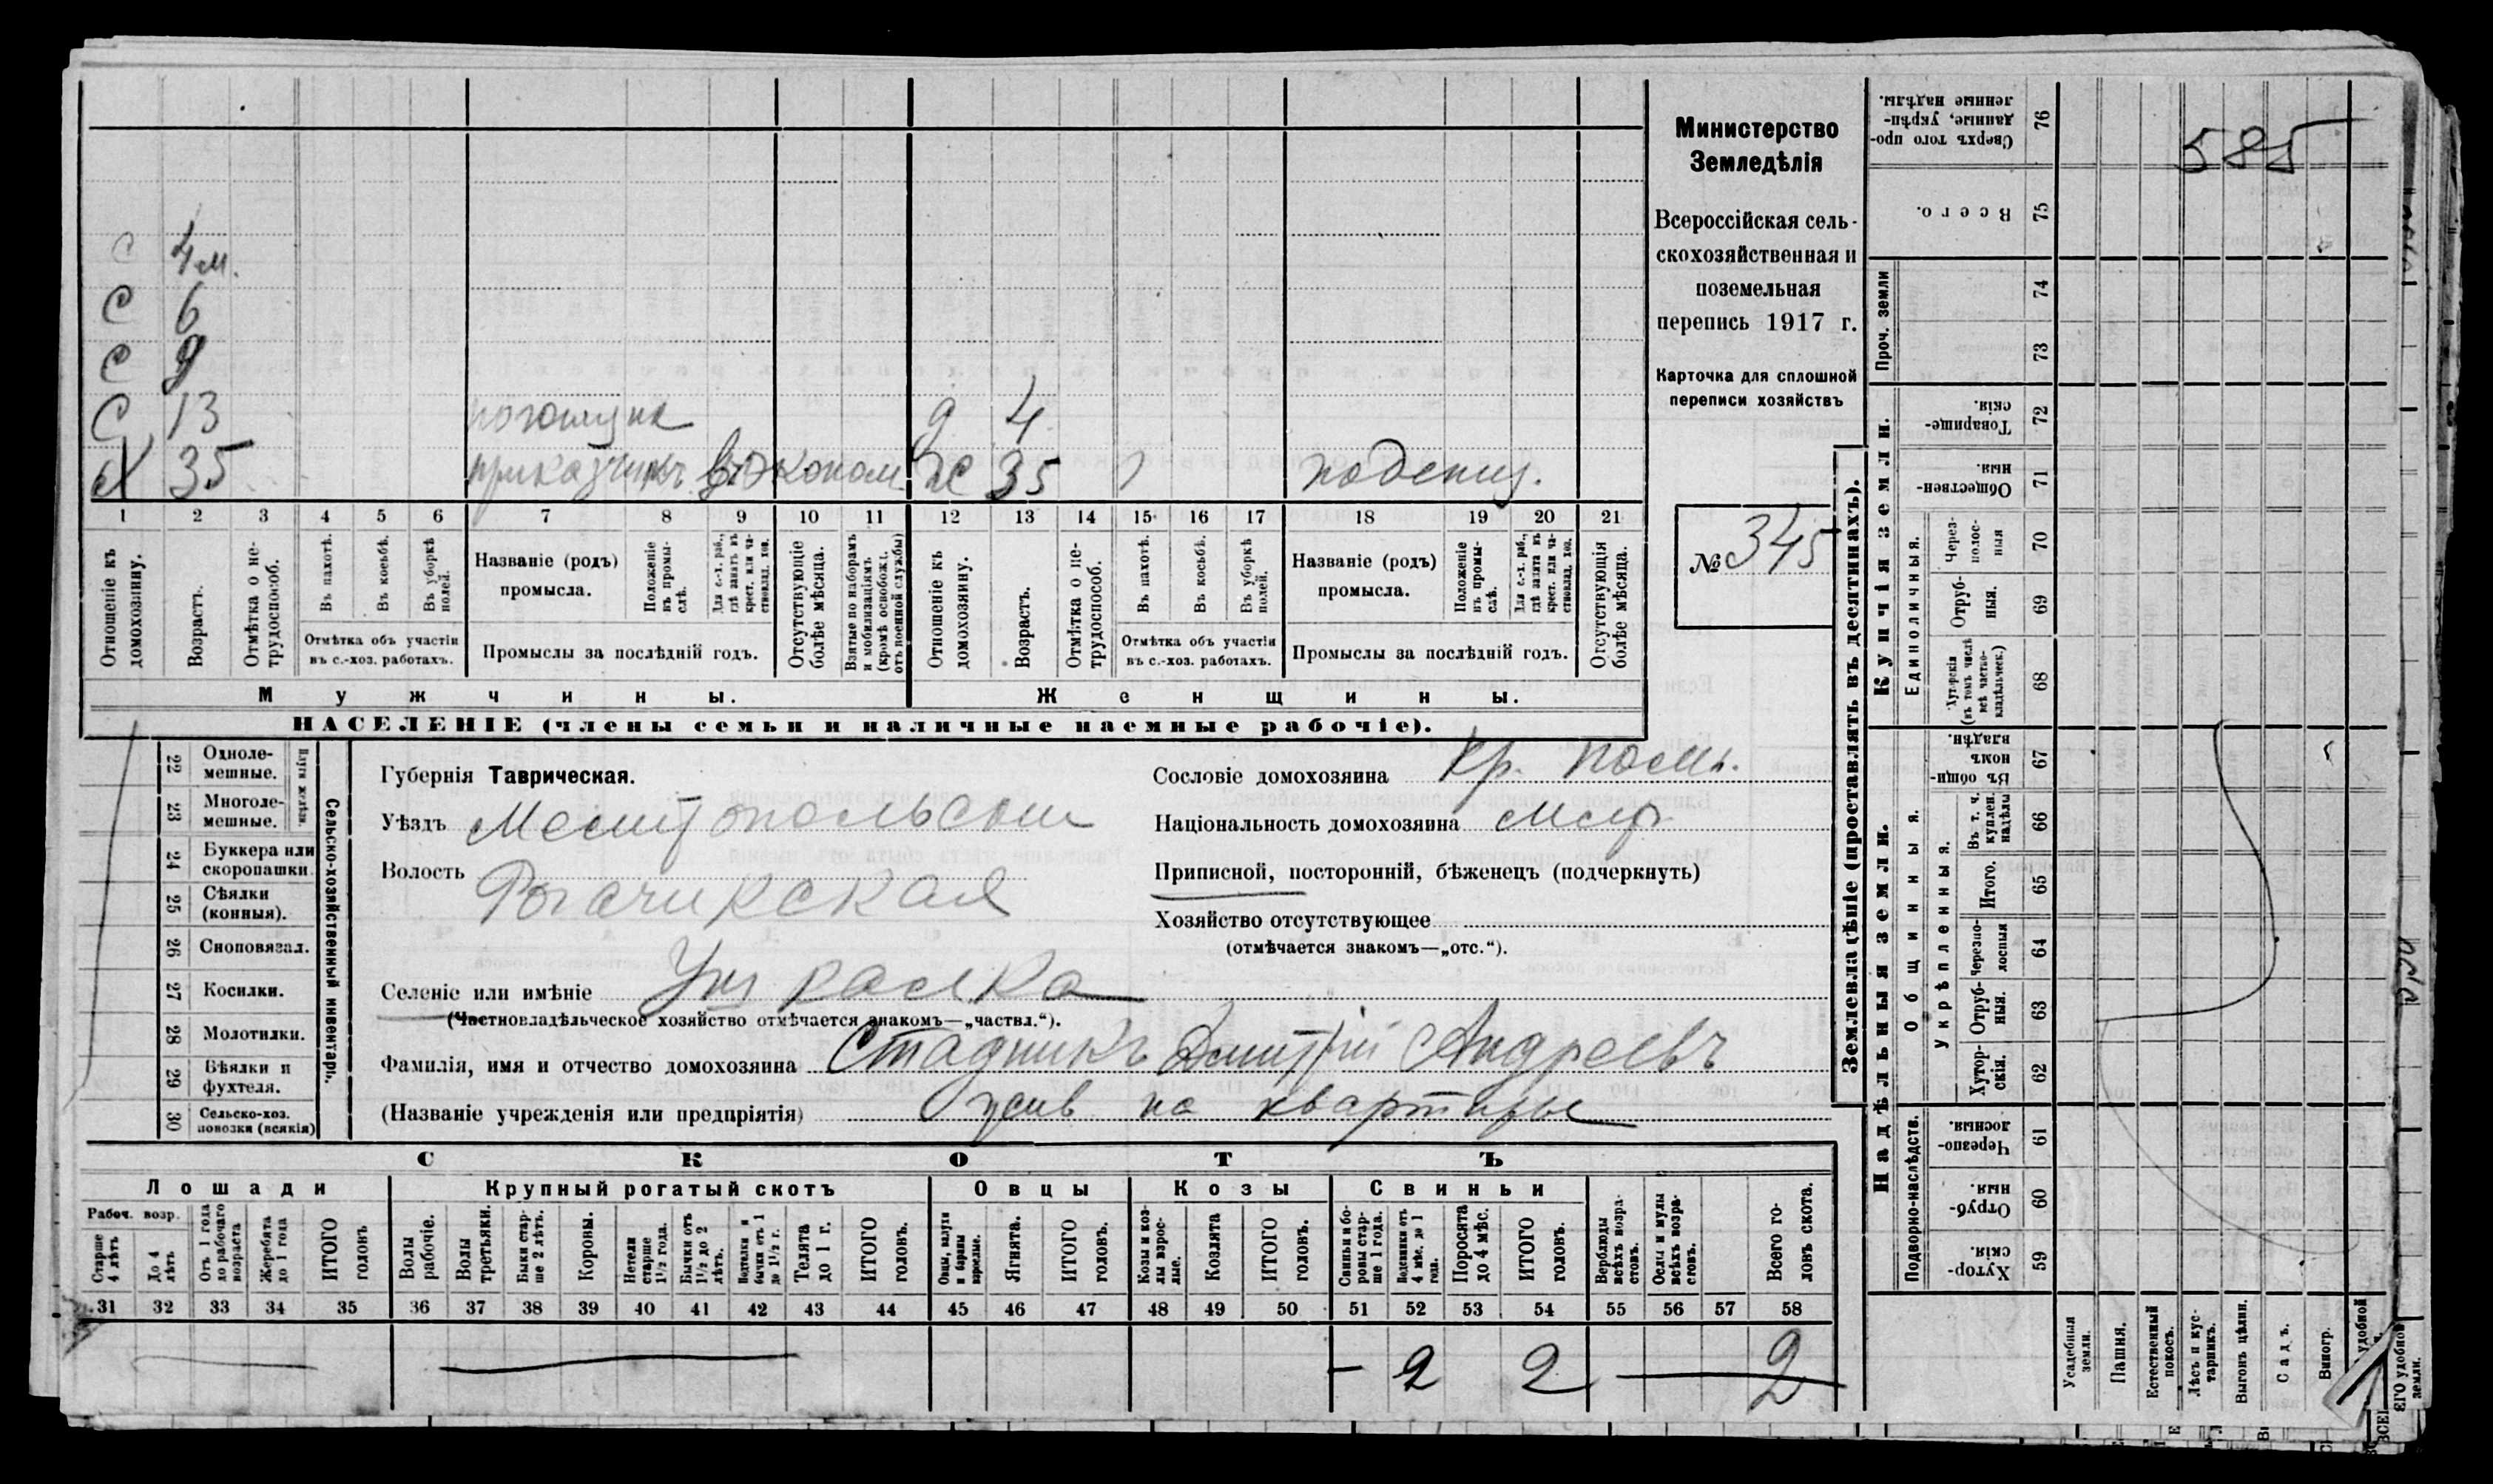 585
С 4 м.
С 6
С 9
С 13 погонщик д 4
Х 35 приказчикъ въ эконом. Ж 35 1 поденщ.
1 2 3 4 5 6 7 8 9 10 11 12 13 14 15 16 17 18 19 20 21
Отношеніе къ домохозяину.
Возрастъ.
Отмѣтка о не-трудоспособ.
Въ пахотѣ.
Въ косьбѣ.
Въ уборкѣ полей.
Отмѣтка объ участіи
въ с.-хоз. работахъ.
Названіе (родъ)
промысла.
Положеніе въ промы-слѣ.
Для с.-х. раб., гдѣ занятъ въ крест. или ча-стновлад. хоз.
Промыслы за послѣдній годъ.
Отсутствующіе болѣе мѣсяца.
Взятые по наборамъ и мобилизаціямъ (кромѣ освобожд. отъ военной службы)
Отношеніе къ домохозяину.
Возрастъ.
Отмѣтка о не-трудоспособ.
Въ пахотѣ.
Въ косьбѣ.
Въ уборкѣ полей.
Отмѣтка объ участіи
въ с.-хоз. работахъ.
Названіе (родъ)
промысла.
Положеніе въ промы-слѣ.
Для с.-х. раб., гдѣ занята въ крест. или ча-стновлад. хоз.
Промыслы за послѣдній годъ.
Отсутствующія болѣе мѣсяца.
Мужчины.
Женщины.
НАСЕЛЕНІЕ (члены семьи и наличные наемные рабочіе).
Министерство
Земледѣлія
Всероссійская сель-
скохозяйственная и
поземельная
перепись 1917 г.
Карточка для сплошной
переписи хозяйствъ
№ 345
22 Одноле-мешные.
23 Многоле-мешные.
Плуги желѣзн.
24 Буккера или скоропашки
25 Сѣялки (конныя).
26 Сноповязал.
27 Косилки.
28 Молотилки.
29 Вѣялки и фухтеля.
30 Сельско-хоз. повозки (всякія)
Сельско-хозяйственный инвентарь.
Губернія Таврическая.
Уѣздъ
Волость
Селеніе или имѣніе
(Частновладѣльческое хозяйство отмѣчается знакомъ—„частвл.“).
Фамилія, имя и отчество домохозяина Стадникъ Дмитрій Андреевъ
(Названіе учрежденія или предпріятія) жив на квартире
Сословіе домохозяина Кр.
Національность домохозяина
Приписной, посторонній, бѣженецъ (подчеркнуть)
Хозяйство отсутствующее
(отмѣчается знакомъ—„отс.“).
СКОТЪ
Лошади
Рабоч. возр.
Старше 4 лѣтъ
До 4 лѣтъ
Отъ 1 года до рабочаго возраста
Жеребята до 1 года
ИТОГО головъ
Крупный рогатый скотъ
Волы рабочіе.
Волы третьяки.
Быки стар-ше 2 лѣтъ.
Коровы.
Нетели старше 1½ года.
Бычки отъ 1½ до 2 лѣтъ.
Подтелки и бычки отъ 1 до 1½ г.
Телята до 1 г.
ИТОГО головъ.
Овцы
Овцы, валухи и бараны взрослые.
Ягнята.
ИТОГО головъ.
Козы
Козы и коз-лы взрос-лые.
Козлята
ИТОГО головъ.
Свиньи
Свиньи и бо-ровы стар-ше 1 года.
Подсвинки отъ 4 мѣс. до 1 года.
Поросята до 4 мѣс.
ИТОГО головъ.
Верблюды всѣхъ возра-стовъ.
Ослы и мулы всѣхъ возра-стовъ.
Всего го-ловъ скота.
31 32 33 34 35 36 37 38 39 40 41 42 43 44 45 46 47 48 49 50 51 52 53 54 55 56 57 58
– 2 2 — 2
Землевладѣніе (проставлять въ десятинахъ).
Надѣльныя земли.
Купчія земли.
Проч. земли
Подворно-наслѣдств.
Общинныя.
Укрѣпленныя.
Единоличныя.
76 Сверхъ того про-данные, укрѣп-ленные надѣлы.
75 Всего.
74
73
72 Товарище-скія.
71 Обществен-ныя.
70 Через-полос-ныя
69 Отруб-ныя.
68 Хуторскія (въ томъ числѣ всѣ частно-владѣльческ.)
67 Въ общин-номъ владѣн.
66 Въ т. ч. куплен. надѣлы
65 Итого.
64 Черезпо-лосныя
63 Отруб-ныя.
62 Хутор-скія.
61 Черезпо-лосныя.
60 Отруб-ныя.
59 Хутор-скія.
Усадебныя земли.
Пашня.
Естественный покосъ.
Лѣсъ и кус-тарникъ.
Выгонъ цѣлин.
Садъ.
Виногр.
удобной
ЕГО удобной земли.